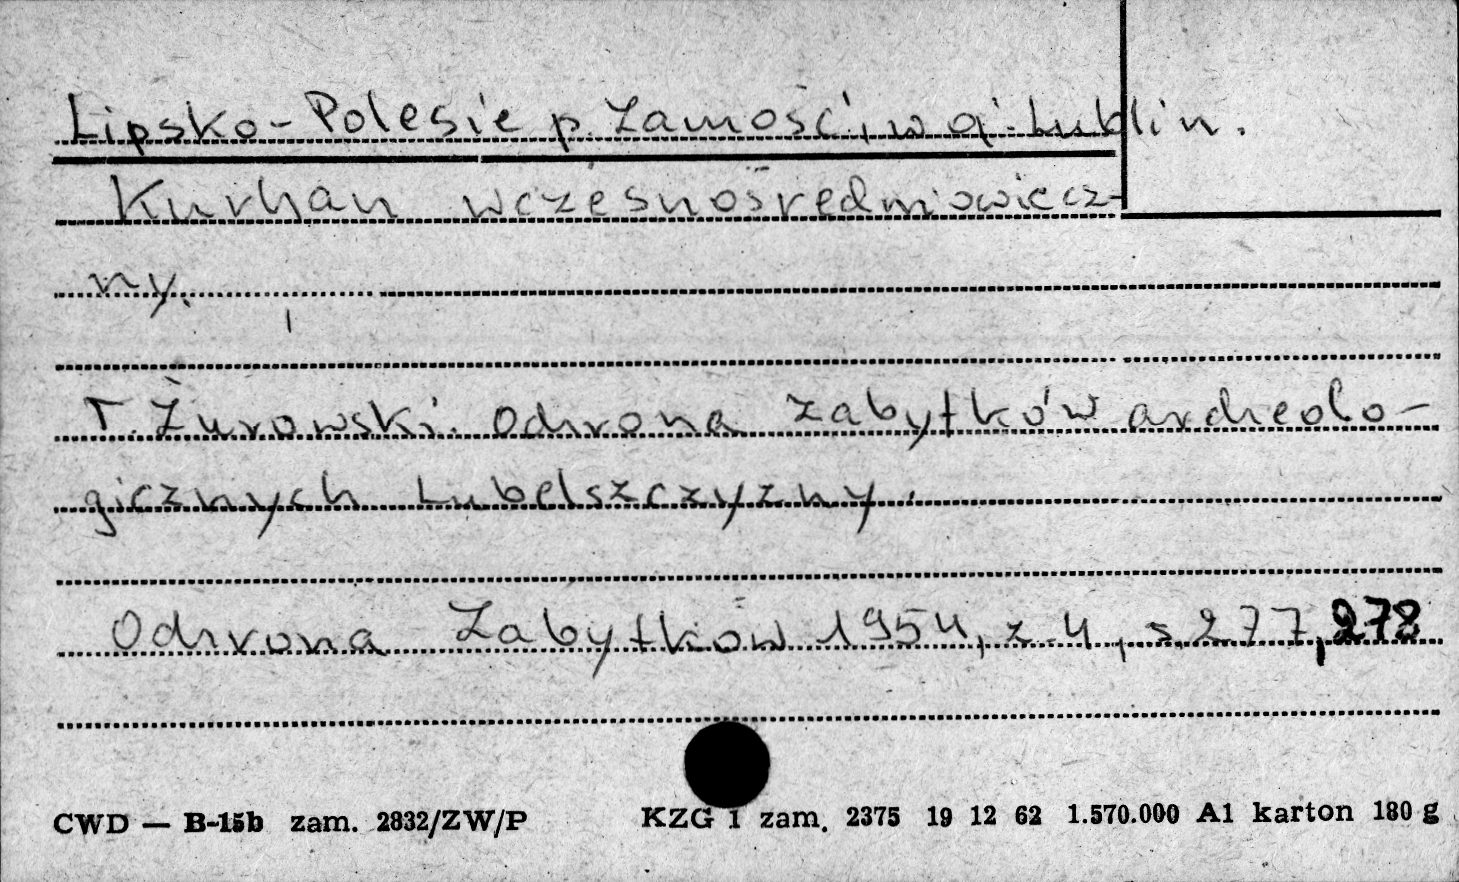 Lipsko-Polesie p. Zamość, woj. Lublin.
Kurhan wczesnośredniowiecz-
ny.
T. Żurowski. Ochrona zabytków archeolo-
gicznych Lubelszczyzny.
Ochrona Zabytków 1954, z. 4, s. 277, 278
CWD — B-15b zam. 2832/ZW/P KZG 1 zam. 2375 19 12 62 1.570.000 A1 karton 180 g